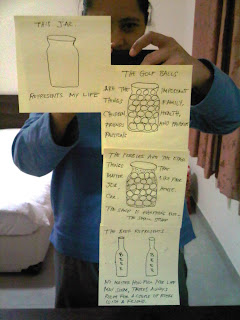 THIS JAR
REPRESENTS MY LIFE
THE GOLF BALLS
ARE THE IMPORTANT
THINGS FAMILY,
CHILDREN, HEALTH,
FRIENDS AND
PASSIONS
THE PEBBLES ARE THE OTHER
THINGS THAT
MATTER LIKE THE
JOB,
CAR
THE SAND IS EVERYTHING ELSE...
THE SMALL STUFF
THE BEER REPRESENTS
BEER
BEER
NO MATTER HOW FULL YOUR LIFE
MAY SEEM, THERE'S ALWAYS
ROOM FOR A COUPLE OF BEERS
WITH A FRIEND.